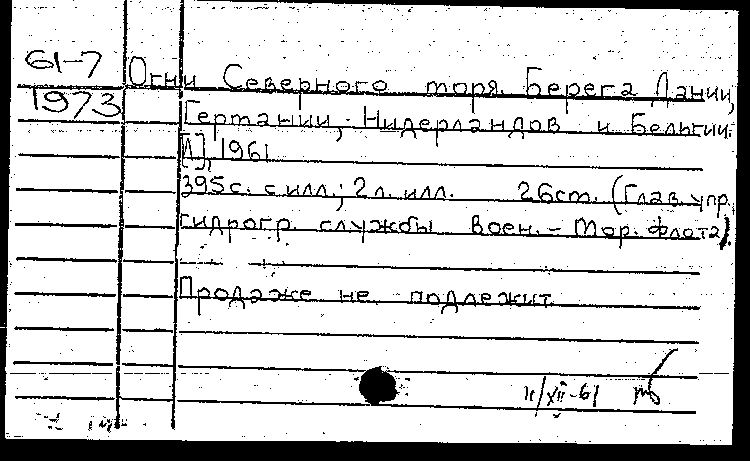 61-7 Огни Северного моря. Берега Дании,
1973 Германии, Нидерландов и Бельгии.
[Л], 1961
395 с. с илл.; 2 л. илл. 26 см. (Глав. упр.
гидрогр. службы Воен.-Мор. флота).
Продаже не подлежит
11/XII-61